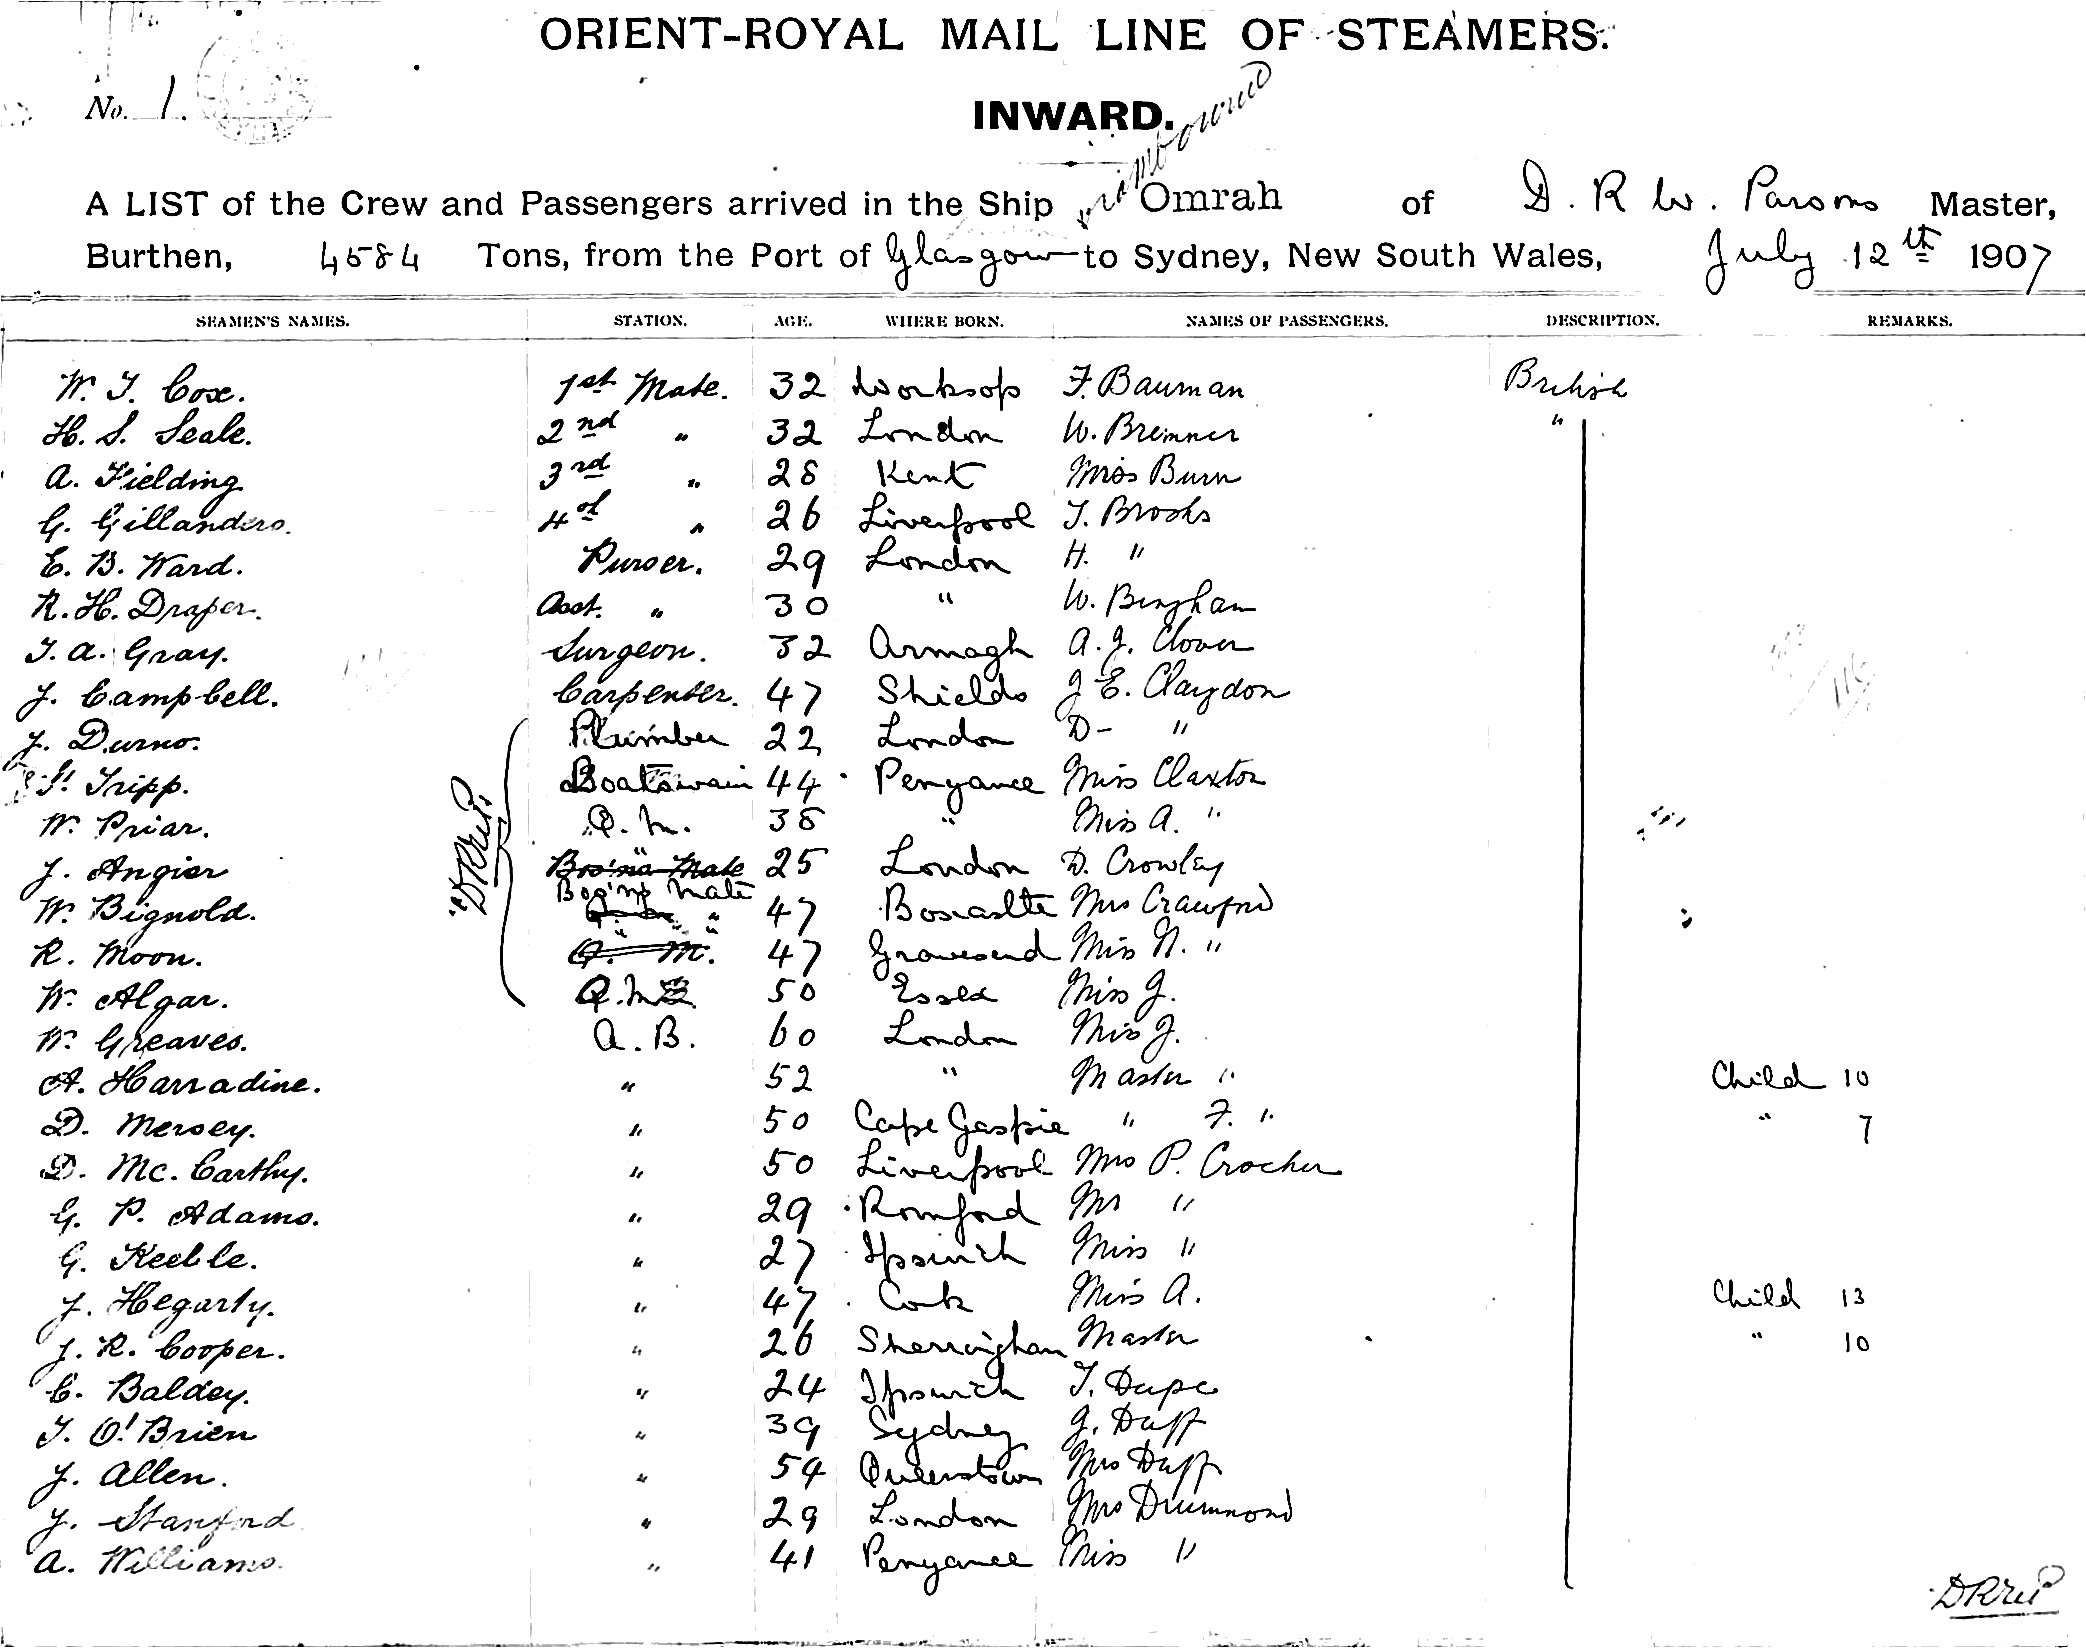 ORIENT-ROYAL MAIL LINE OF STEAMERS.
No. 1.
INWARD.
A LIST of the Crew and Passengers arrived in the Ship Omrah of D. R W. Parsons Master,
Burthen, 4584 Tons, from the Port of Glasgow to Sydney, New South Wales, July 12th 1907
SEAMEN'S NAMES. STATION. AGE. WHERE BORN. NAMES OF PASSENGERS. DESCRIPTION. REMARKS.
W. T. Cox. 1st Mate. 32 Worksop F. Bauman British
H. S. Seale. 2nd " 32 London W. Bremner "
A. Fielding 3rd " 28 Kent Miss Burn
G. Gillanders. 4th " 26 Liverpool T. Brooks
E. B. Ward. Purser. 29 London H. "
R. H. Draper. Asst. " 30 " W. Bingham
T. A. Gray. Surgeon. 32 Armagh A. J. Clover
J. Campbell. Carpenter. 47 Shields J E. Claydon
J. Durno. Plumber 22 London D- "
Tripp. Boatswain 44 Penzance Miss Claxton
W. Priar. Q. M. 38 " Miss A. "
J. Angier Bos'ns Mate 25 London D. Crowley
W. Bignold. Bos'ns Mate 47 Boscastle Mrs Crawford
R. Moon. Q. M. 47 Gravesend Miss N. "
W. Algar. Q. M. 50 Essex Miss J.
W. Greaves. A. B. 60 London Miss J.
A. Harradine. " 52 " Master " Child 10
D. Mersey. " 50 Cape Gaspie " F. " " 7
D. Mc. Carthy. " 50 Liverpool Mrs P. Crocker
G. P. Adams. " 29 Romford Mr "
G. Keeble. " 27 Ipswich Miss "
J. Hegarty. " 47 Cork Miss A. Child 13
J. R. Cooper. " 26 Sherringham Master " 10
C. Baldey. " 24 Ipswich T. Dupe
T. O'Brien " 39 Sydney J. Duff
J. Allen. " 54 Queenstown Mrs Duff
J. Stanford " 29 London Mrs Drummond
A. Williams. " 41 Penzance Miss "
DRWP